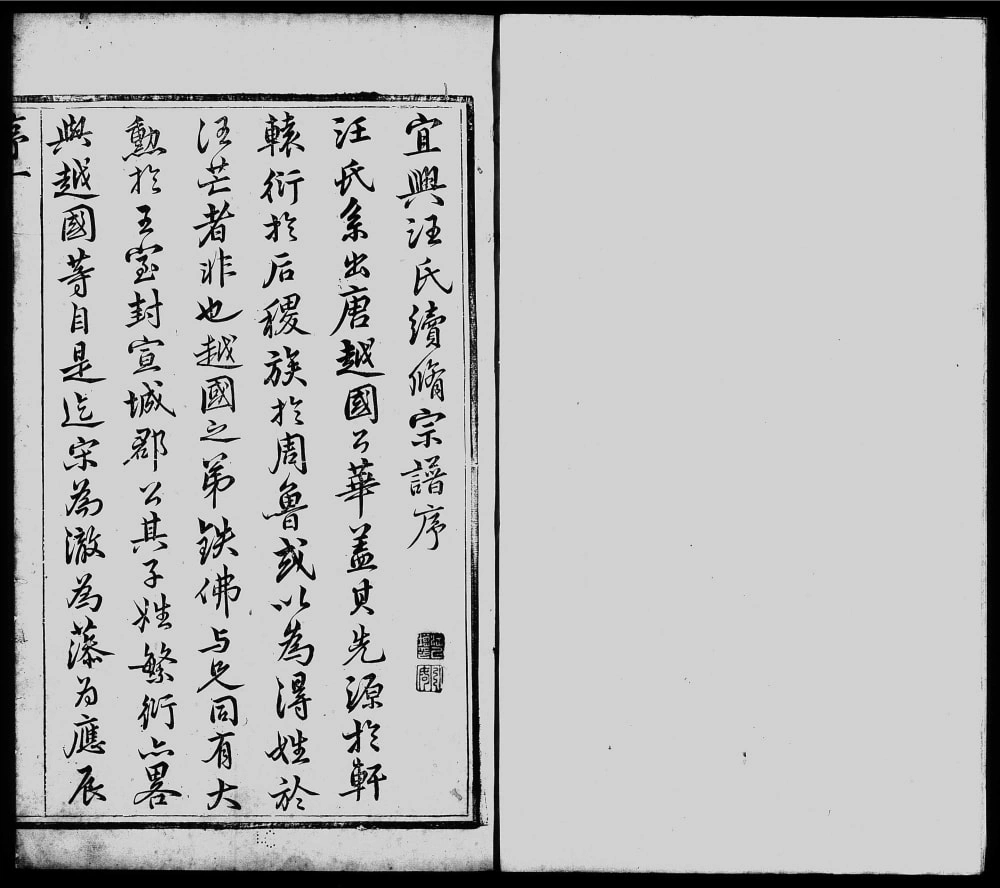 宜興汪氏續脩宗譜序
汪氏系出唐越國公華蓋其先源於軒
轅衍於后稷族於周魯或以為得姓於
汪芒者非也越國之弟鉄佛与兄同有大
勲於王室封宣城郡公其子姓繁衍亦畧
與越國等自是迄宋為澈為藻为應辰
序一